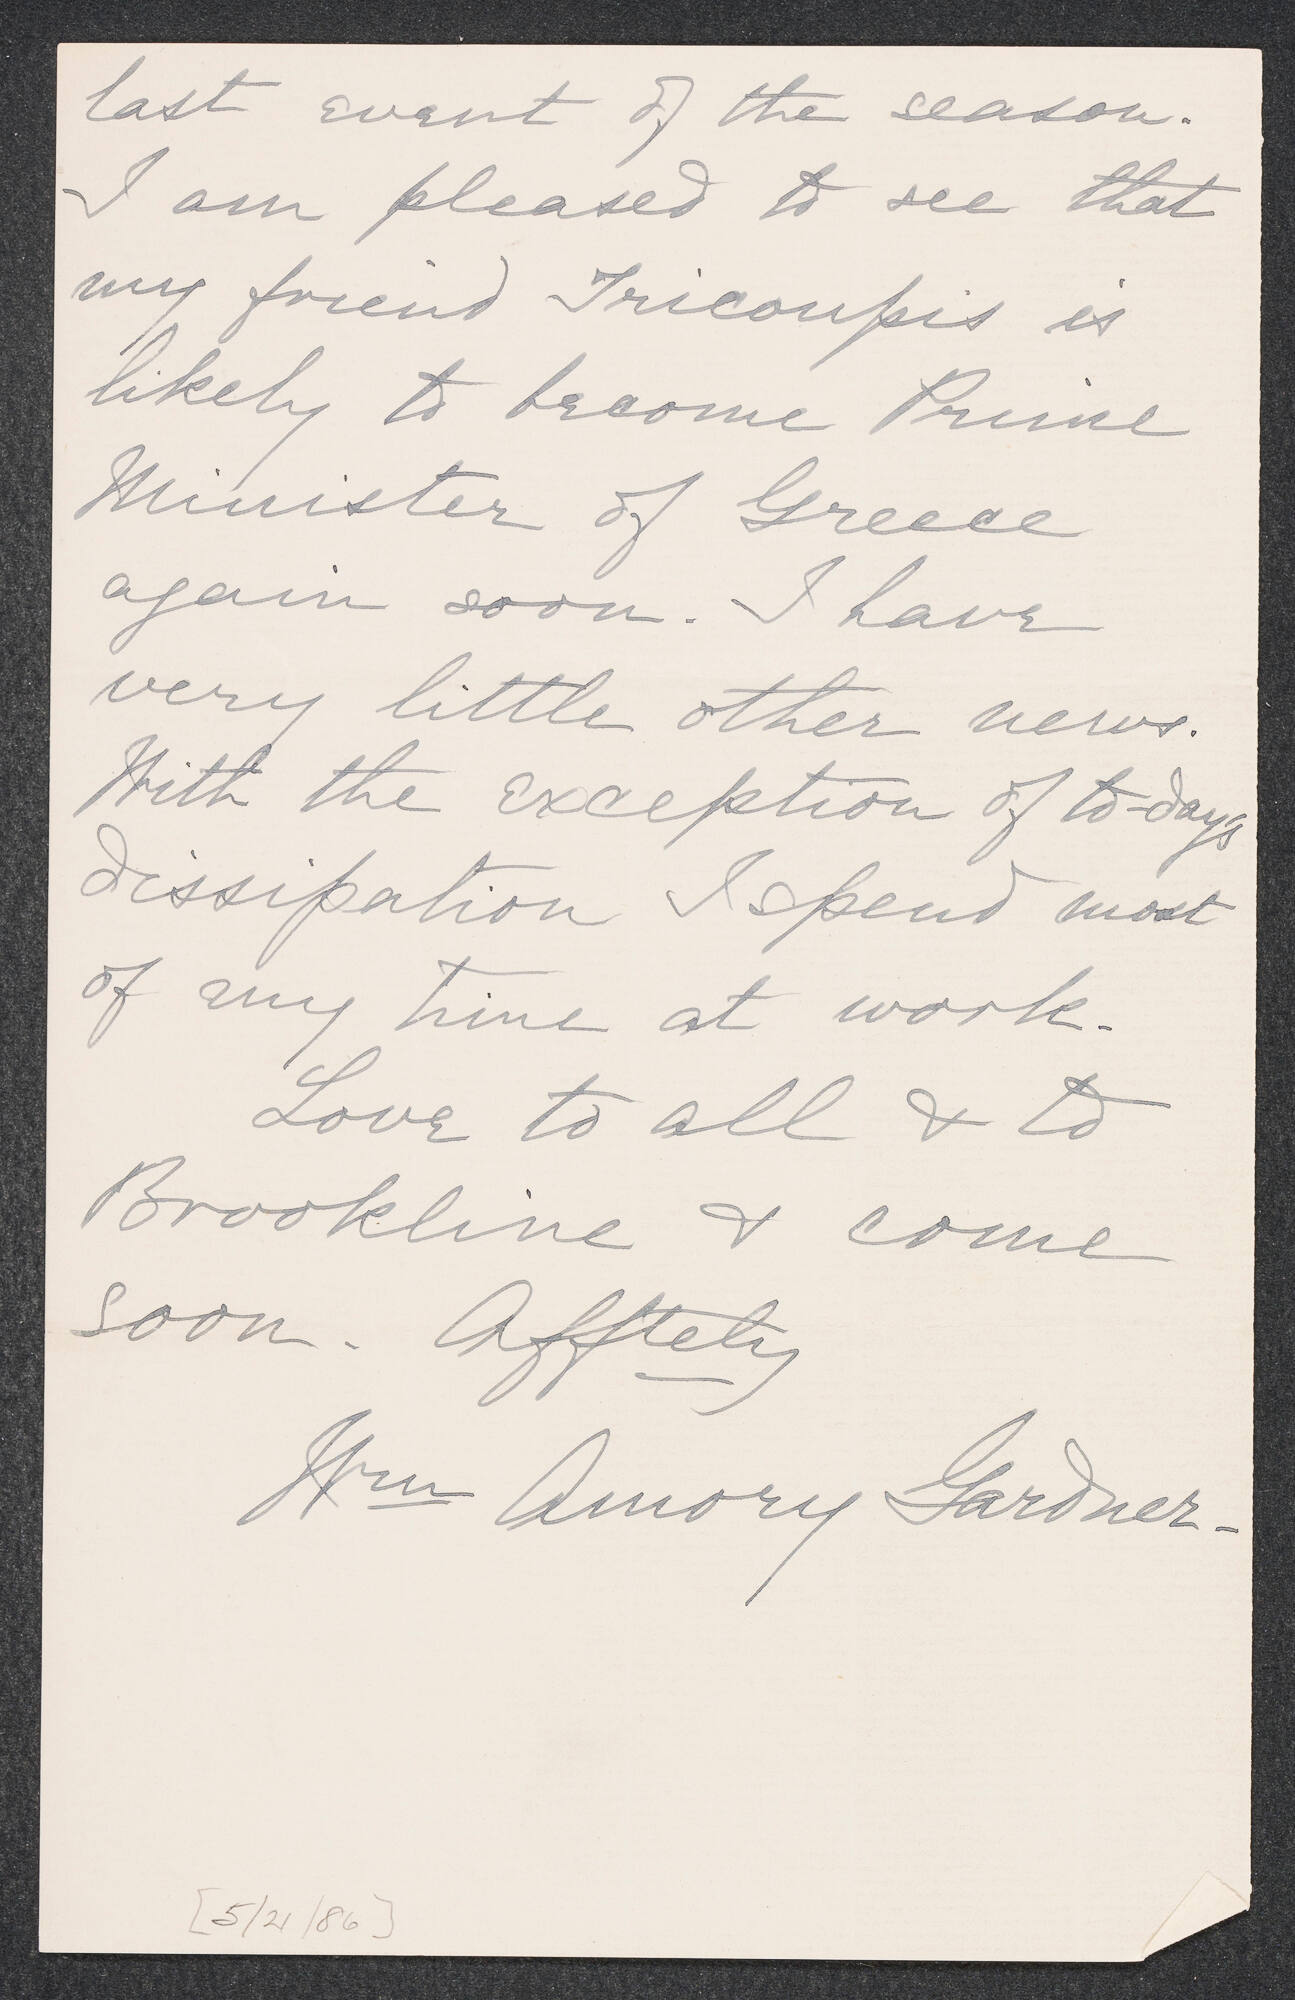 last event of the season.
I am pleased to see that
my friend Tricoupis is
likely to become Prime
Minister of Greece
again soon. I have
very little other news.
With the exception of to-day's
dissipation I spend most
of my time at work.
Love to all & to
Brookline & come
soon. Afftely
Wm Amory Gardner.
[5/21/86]